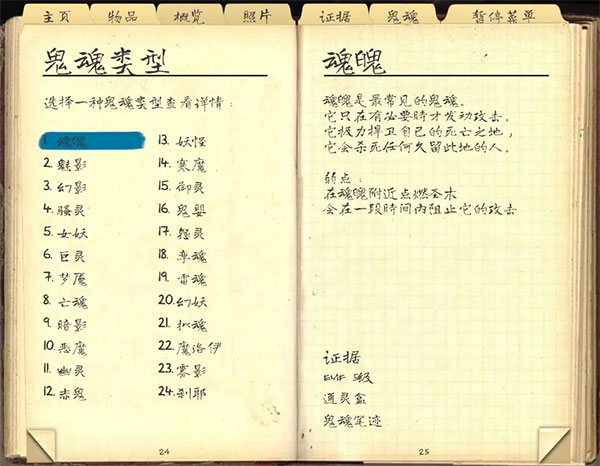 主页
物品
概览
照片
证据
鬼魂
暂停菜单
鬼魂类型
选择一种鬼魂类型查看详情：
1. 魂魄
2. 魅影
3. 幻影
4. 骚灵
5. 女妖
6. 巨灵
7. 梦魇
8. 亡魂
9. 暗影
10. 恶魔
11. 幽灵
12. 赤鬼
13. 妖怪
14. 寒魔
15. 御灵
16. 鬼婴
17. 怨灵
18. 孪魂
19. 雷魂
20. 幻妖
21. 拟魂
22. 魔洛伊
23. 雾影
24. 刹耶
24
魂魄
魂魄是最常见的鬼魂。
它只在有必要时才发动攻击。
它极力捍卫自己的死亡之地，
它会杀死任何久留此地的人。
弱点：
在魂魄附近点燃圣木
会在一段时间内阻止它的攻击
证据
EMF 5级
通灵盒
鬼魂笔迹
25